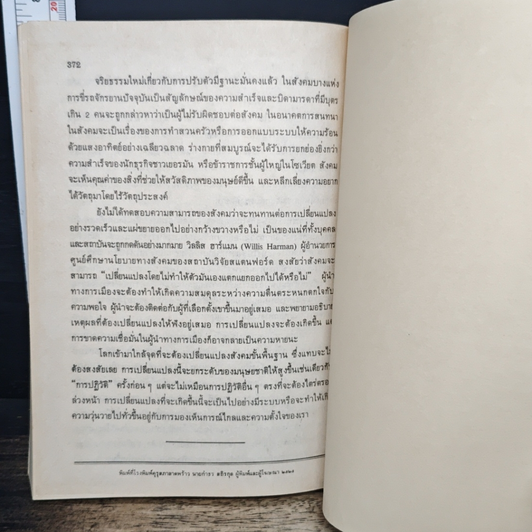 372
จริยธรรมใหม่เกี่ยวกับการปรับตัวมีฐานะมั่นคงแล้ว ในสังคมบางแห่ง
การขี่รถจักรยานปัจจุบันเป็นสัญลักษณ์ของความสำเร็จและบิดามารดาที่มีบุตร
เกิน 2 คนจะถูกกล่าวหาว่าเป็นผู้ไม่รับผิดชอบต่อสังคม ในอนาคตการสนทนา
ในสังคมจะเป็นเรื่องของการทำสวนครัวหรือการออกแบบระบบให้ความร้อน
ด้วยแสงอาทิตย์อย่างเฉลียวฉลาด ร่างกายที่สมบูรณ์จะได้รับการยกย่องยิ่งกว่า
ความสำเร็จของนักธุรกิจชาวเยอรมัน หรือข้าราชการชั้นผู้ใหญ่ในโซเวียต สังคม
จะเห็นคุณค่าของสิ่งที่ช่วยให้สวัสดิภาพของมนุษย์ดีขึ้น และหลีกเลี่ยงความอยาก
ได้วัตถุมาโดยไร้วัตถุประสงค์
ยังไม่ได้ทดสอบความสามารถของสังคมว่าจะทนทานต่อการเปลี่ยนแปลง
อย่างรวดเร็วและแผ่ขยายออกไปอย่างกว้างขวางหรือไม่ เป็นของแน่ที่ทั้งบุคคล
และสถาบันจะถูกกดดันอย่างมากมาย วิลลิส ฮาร์แมน (Willis Harman) ผู้อำนวยการ
ศูนย์ศึกษานโยบายทางสังคมของสถาบันวิจัยสแตนฟอร์ด สงสัยว่าสังคมจะ
สามารถ “เปลี่ยนแปลงโดยไม่ทำให้ตัวมันเองแตกแยกออกไปได้หรือไม่” ผู้นำ
ทางการเมืองจะต้องทำให้เกิดความสมดุลระหว่างความตื่นตระหนกตกใจกับ
ความพอใจ ผู้นำจะต้องติดต่อกับผู้ที่เลือกตั้งเขาขึ้นมาอยู่เสมอ และพยายามอธิบาย
เหตุผลที่ต้องเปลี่ยนแปลงให้ฟังอยู่เสมอ การเปลี่ยนแปลงจะต้องเกิดขึ้น และ
การขาดความเชื่อมั่นในผู้นำทางการเมืองก็อาจกลายเป็นความหายนะ
โลกเข้ามาใกล้จุดที่จะต้องเปลี่ยนแปลงสังคมขั้นพื้นฐาน ซึ่งแทบจะไม่
ต้องสงสัยเลย การเปลี่ยนแปลงนี้จะยกระดับของมนุษยชาติให้สูงขึ้นเช่นเดียวกับ
“การปฏิวัติ” ครั้งก่อน ๆ แต่จะไม่เหมือนการปฏิวัติอื่น ๆ ตรงที่จะต้องไตร่ตรอง
ล่วงหน้า การเปลี่ยนแปลงที่จะเกิดขึ้นนี้จะเป็นไปอย่างมีระบบหรือจะทำให้เกิด
ความวุ่นวายไปทั่วขึ้นอยู่กับการมองเห็นการณ์ไกลและความตั้งใจของเรา
พิมพ์ที่โรงพิมพ์คุรุสภาลาดพร้าว นายกำธร สถิรกุล ผู้พิมพ์และผู้โฆษณา ๒๕๒๕